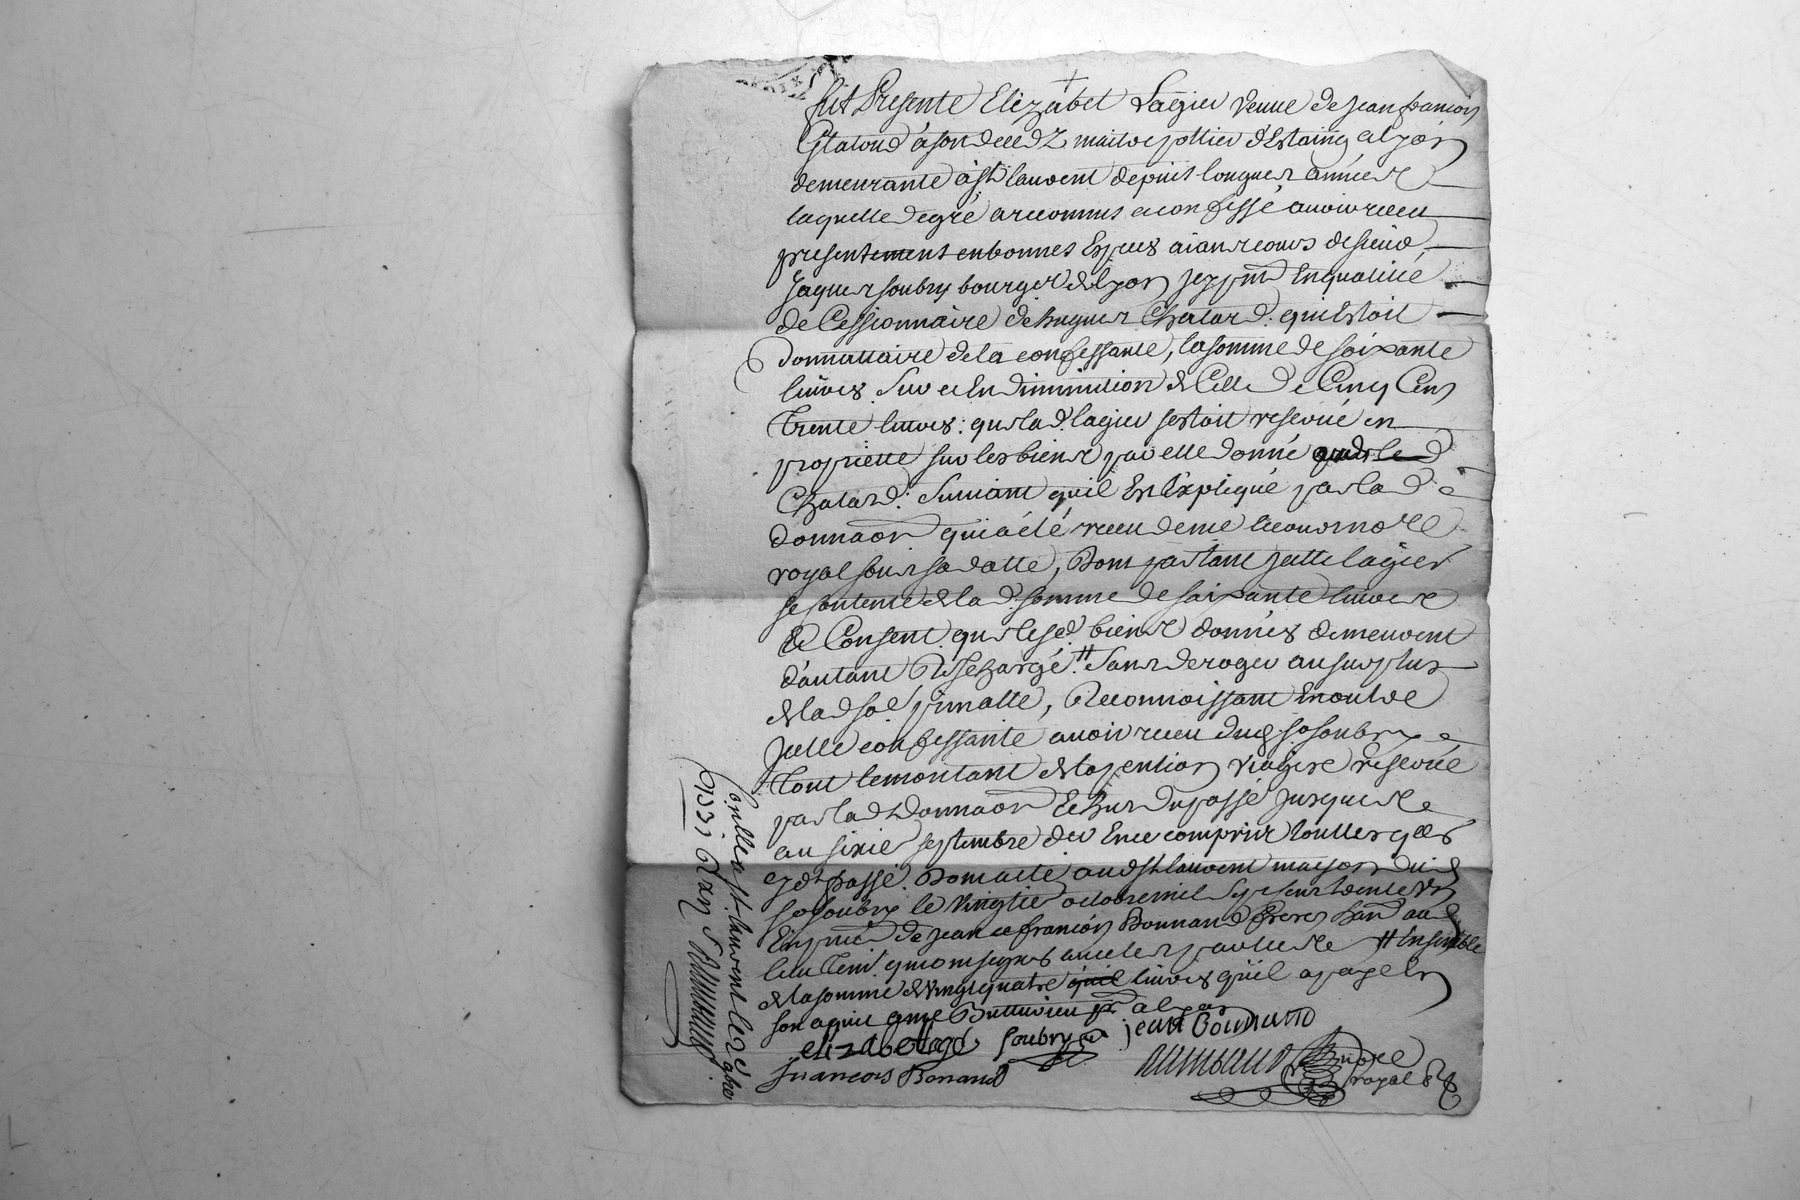 fut Presente Elizabet Lagier veuve de jean francois
Chatard a son deced maitre pottier d'Estaing a lyon
demeurante à St laurent depuis longues années
laquelle de gré a reconnus et confessé avoir receu
presentement en bonnes Especes aiant cours de sieur
Jaques soubry bourgeois de lyon Icy pnt En qualitté
de Cessionnaire de hugues Chatard. qui Estoit
donnattaire de la confessante, la somme de soixante
livres. Sur et En diminution de Celle de Cinq Cens
trente livres: que lad. lagier s'estoit reservé en
propriette sur les biens par elle donné aud.
Chatard. Suivant quil Est Expliqué par lad.
donnaon qui a été receu de me no.re
royal sous sa datte, Dont partant jcelle lagier
se contente de lad somme de soixante livres
et Consent que lesd. biens donnés demeurent
d'autant dessChargé # sans deroger au surplus
de lad so.e , Reconnoissant En outre
jcelle confessante avoir receu dud sr soubry
tout le montant de la pention viagere reservée
par lad donnaon Echus du passé jusques
au sixie septembre der Ence compris touttes qces
cy dt passé. Dont acte aud St laurent maison dud
sr soubry le vingtie octobre mil sept cent trente un
En pnce de jean et francois Bonnand freres dud
lieu tem. qui ont signés avec les parties # Ensemble
de la somme de vingt quatre livres quil a payé
son aquit a lyon
elizabet lagé soubry jean Bonnand
francois Bonand no.re
royal
Conlle a st laurent le
1731 Rx